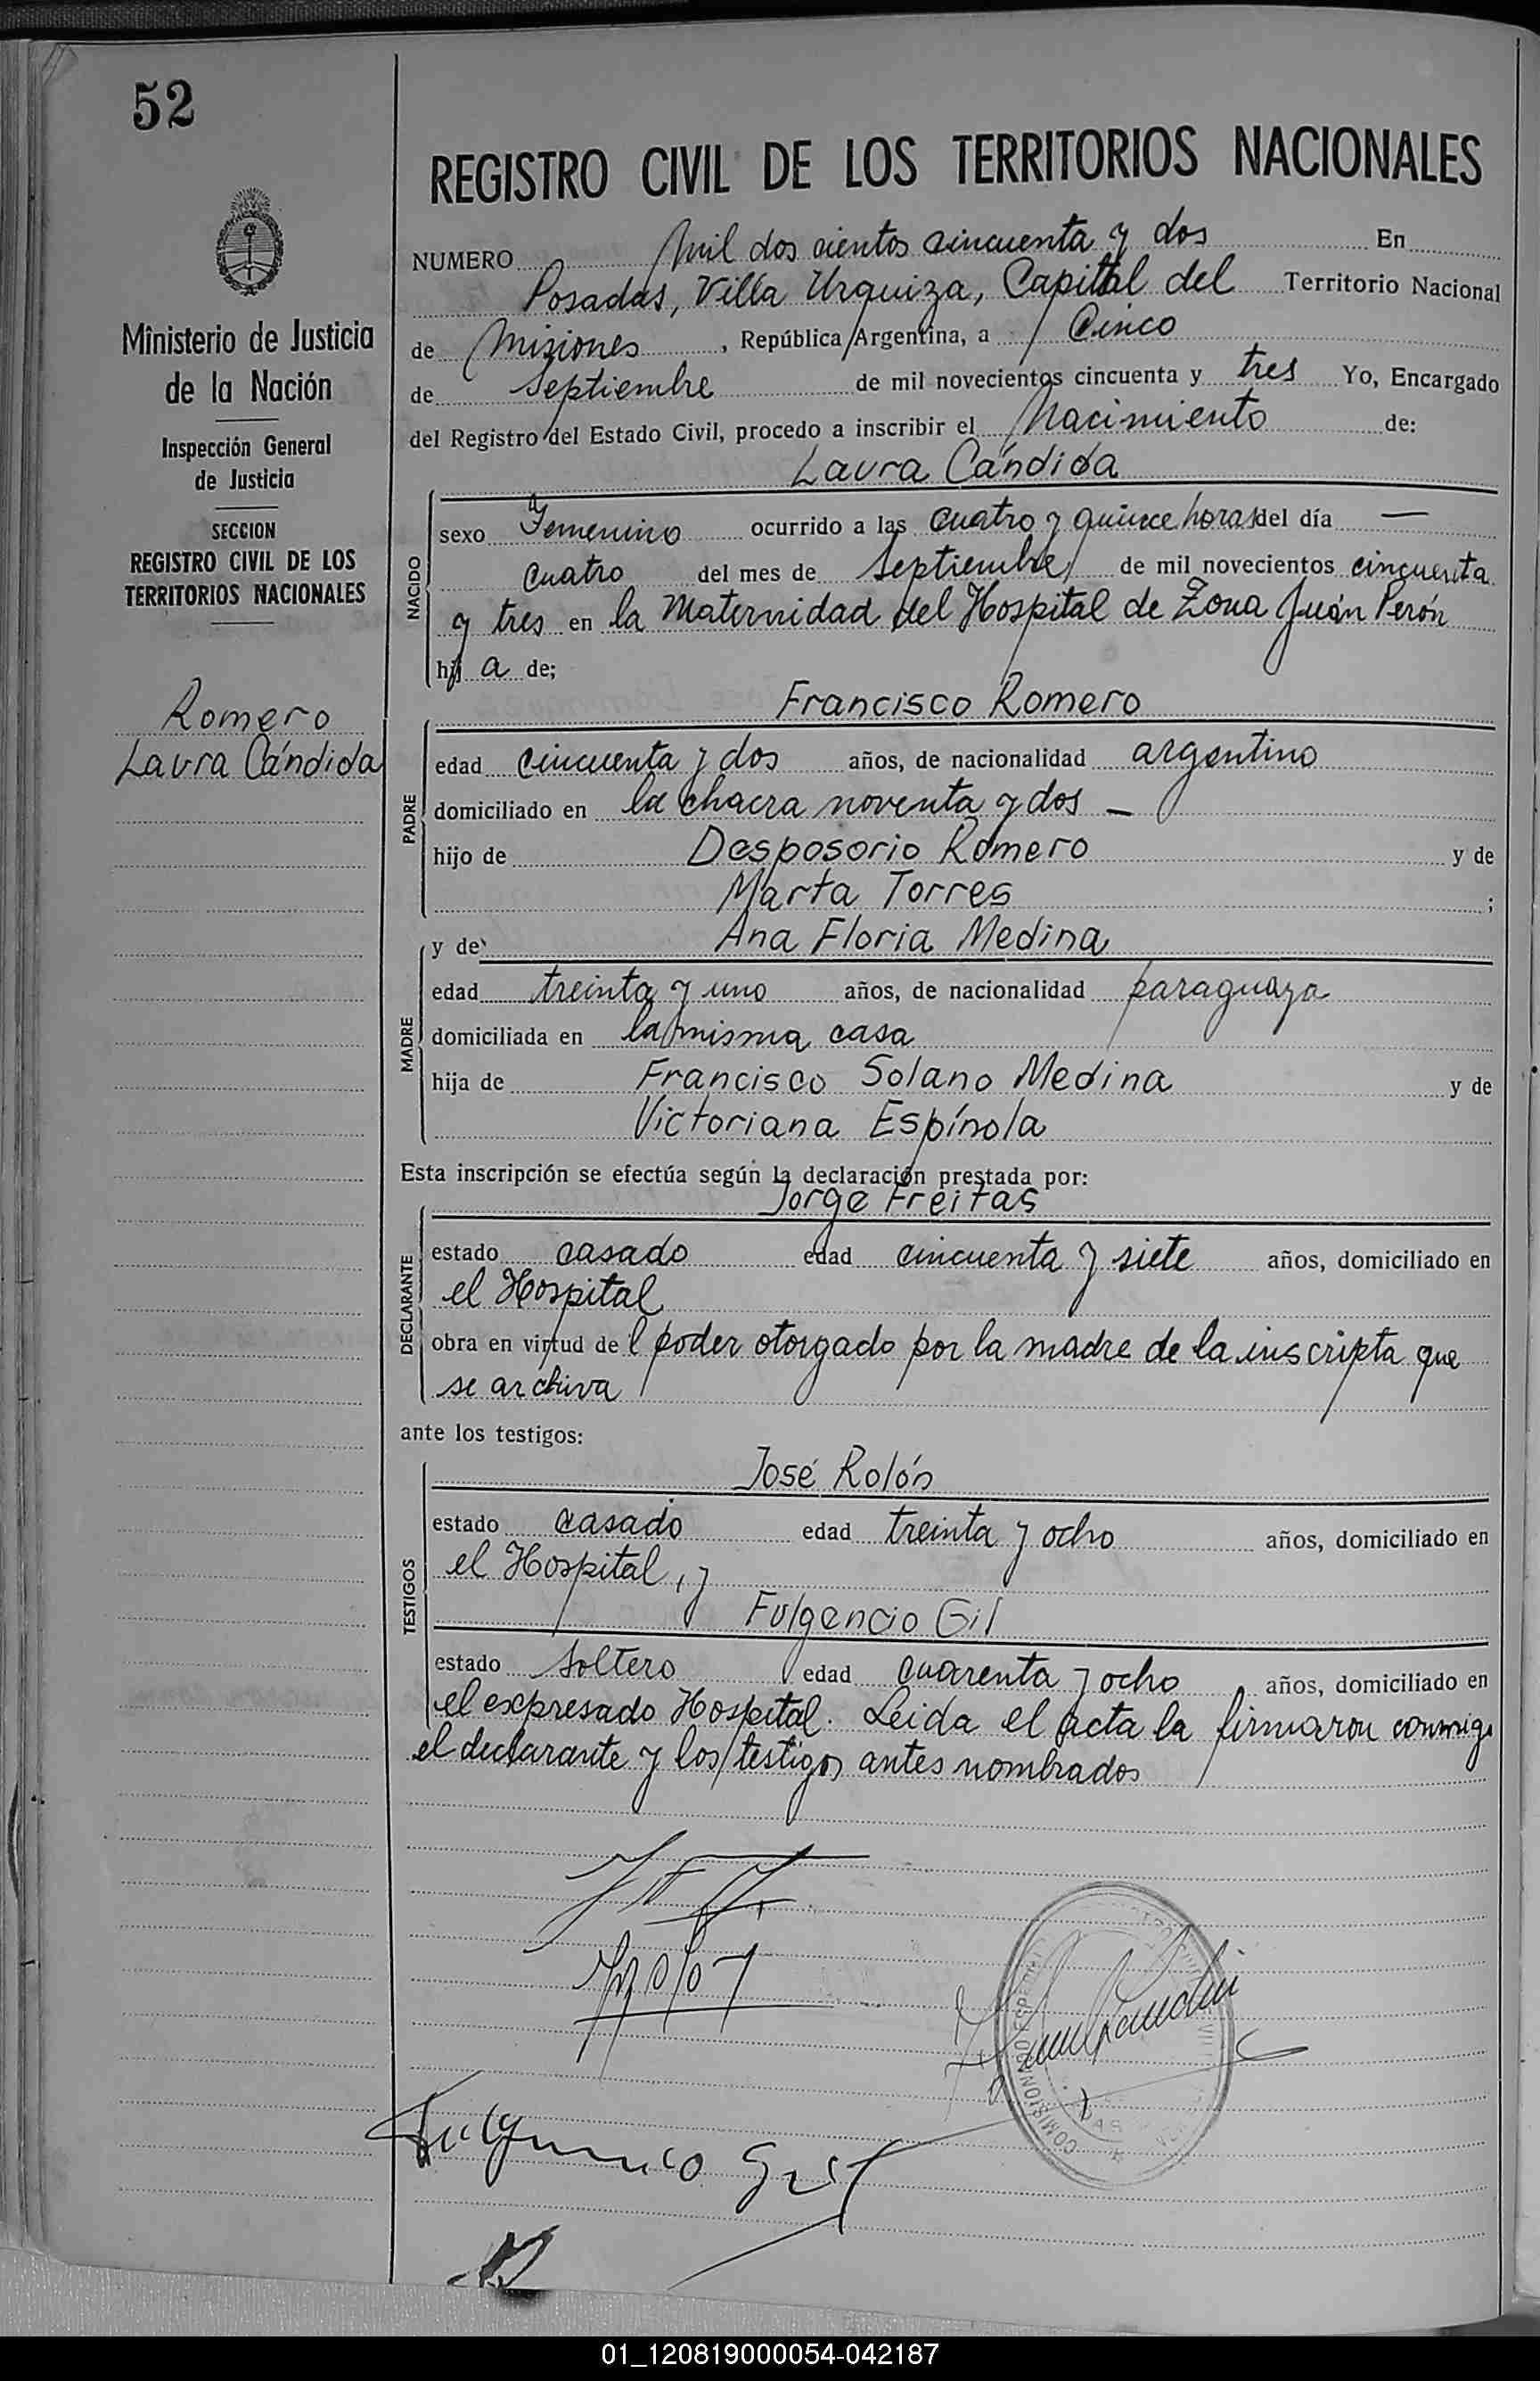 52
REGISTRO CIVIL DE LOS TERRITORIOS NACIONALES
Ministerio de Justicia
de la Nación
Inspección General
de Justicia
SECCION
REGISTRO CIVIL DE LOS
TERRITORIOS NACIONALES
Romero
Laura Cándida
NUMERO Mil dos cientos cincuenta y dos En
Posadas, Villa Urquiza, Capital del Territorio Nacional
de Misiones, República Argentina, a Cinco
de Septiembre de mil novecientos cincuenta y tres Yo, Encargado
del Registro del Estado Civil, procedo a inscribir el Nacimiento de:
Laura Cándida
NACIDO
sexo Femenino ocurrido a las cuatro y quince horas del día —
cuatro del mes de Septiembre de mil novecientos cincuenta
y tres en la Maternidad del Hospital de Zona Juán Perón
hij a de;
Francisco Romero
PADRE
edad cincuenta y dos años, de nacionalidad argentino
domiciliado en la chacra noventa y dos —
hijo de Desposorio Romero y de
Marta Torres ;
y de Ana Floria Medina
MADRE
edad treinta y uno años, de nacionalidad paraguaya
domiciliada en la misma casa
hija de Francisco Solano Medina y de
Victoriana Espínola
Esta inscripción se efectúa según la declaración prestada por:
Jorge Freitas
DECLARANTE
estado casado edad cincuenta y siete años, domiciliado en
el Hospital
obra en virtud de l poder otorgado por la madre de la inscripta que
se archiva
ante los testigos:
José Rolón
TESTIGOS
estado casado edad treinta y ocho años, domiciliado en
el Hospital, y
Fulgencio Gil
estado soltero edad cuarenta y ocho años, domiciliado en
el expresado Hospital. Leida el acta la firmaron conmigo
el declarante y los testigos antes nombrados
Fulgencio Gil
01_120819000054-042187